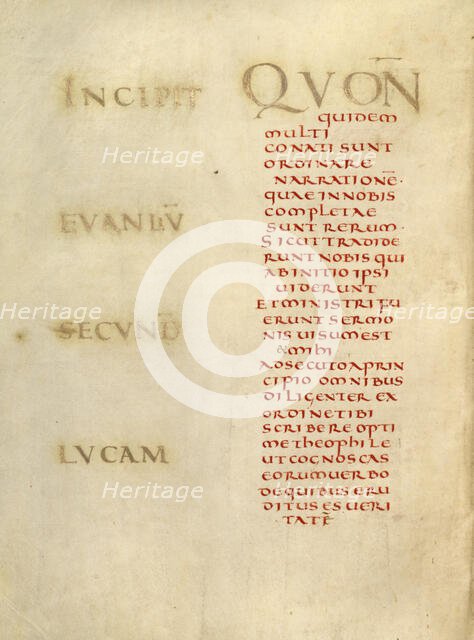 INCIPIT
EVANLV̄
SECVND̄
LVCAM
QVOÑ
QUIDEM
MULTI
CONATI SUNT
ORDINARE
NARRATIONĒ·
QUAE IN NOBIS
COMPLETAE
SUNT RERUM·
SICUT TRADIDE
RUNT NOBIS QUI
AB INITIO IPSI
UIDERUNT
ET MINISTRI FU
ERUNT SERMO
NIS UISUM EST
& MIHI
ADSECUTO A PRIN
CIPIO OMNIBUS
DILIGENTER EX
ORDINE TIBI
SCRIBERE OPTI
ME THEOPHILE
UT COGNOSCAS
EORUM UERBO
DE QUIBUS ERU
DITUS ES UERI
TATĒ
Heritage
Heritage
Heritage
Heritage
Heritage
Heritage
Heritage
Heritage
©